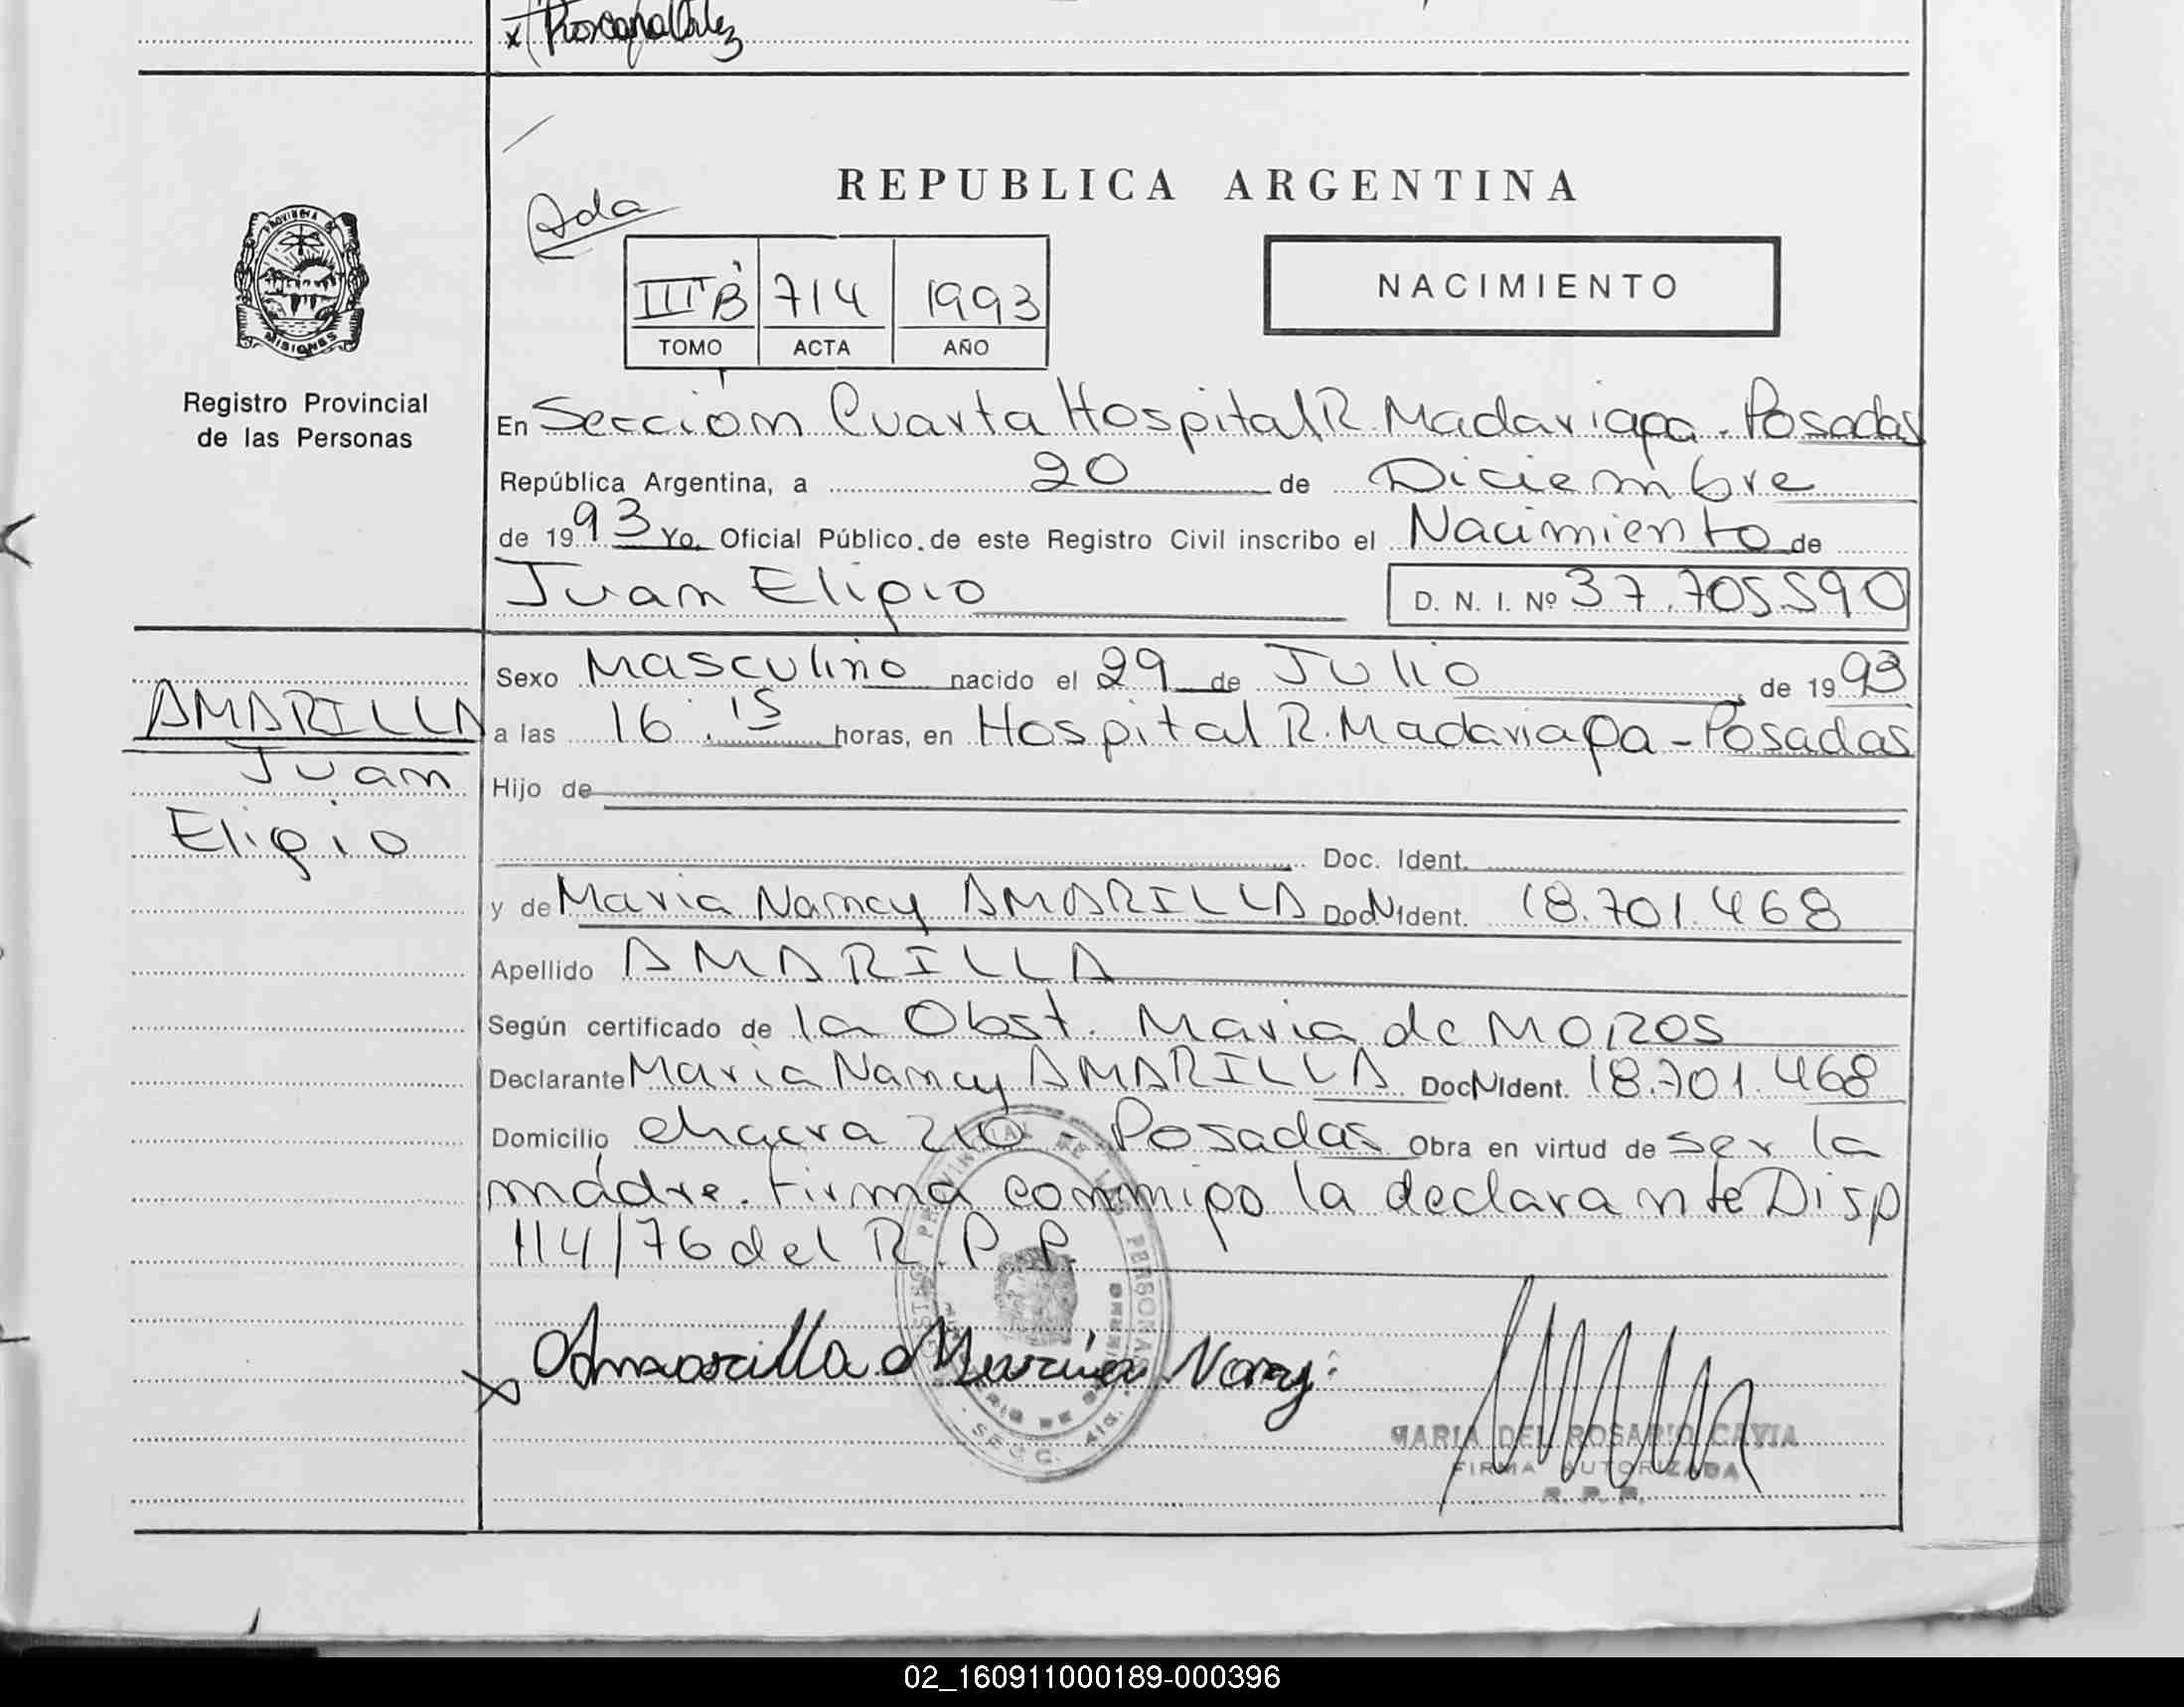 REPUBLICA ARGENTINA
Ada
III B 714 1993
TOMO ACTA AÑO
NACIMIENTO
PROVINCIA DE
MISIONES
Registro Provincial
de las Personas
En Sección Cuarta Hospital R. Madariaga - Posadas
República Argentina, a 20 de Diciembre
de 1993 Yo, Oficial Público de este Registro Civil inscribo el Nacimiento de
Juan Eligio D. N. I. Nº 37.705.590
AMARILLA
Juan
Eligio
Sexo Masculino nacido el 29 de Julio, de 1993
a las 16.15 horas, en Hospital R. Madariaga - Posadas
Hijo de
Doc. Ident.
y de Maria Nancy AMARILLA Doc N Ident. 18.701.468
Apellido AMARILLA
Según certificado de la Obst. Maria de MOROS
Declarante Maria Nancy AMARILLA Doc N Ident. 18.701.468
Domicilio chacra 210 - Posadas Obra en virtud de ser la
madre. Firma conmigo la declarante Disp
114/76 del R.P.P.
Amarilla María Nancy
MARIA DEL ROSARIO CAVIA
FIRMA AUTORIZADA
R. P. P.
02_160911000189-000396